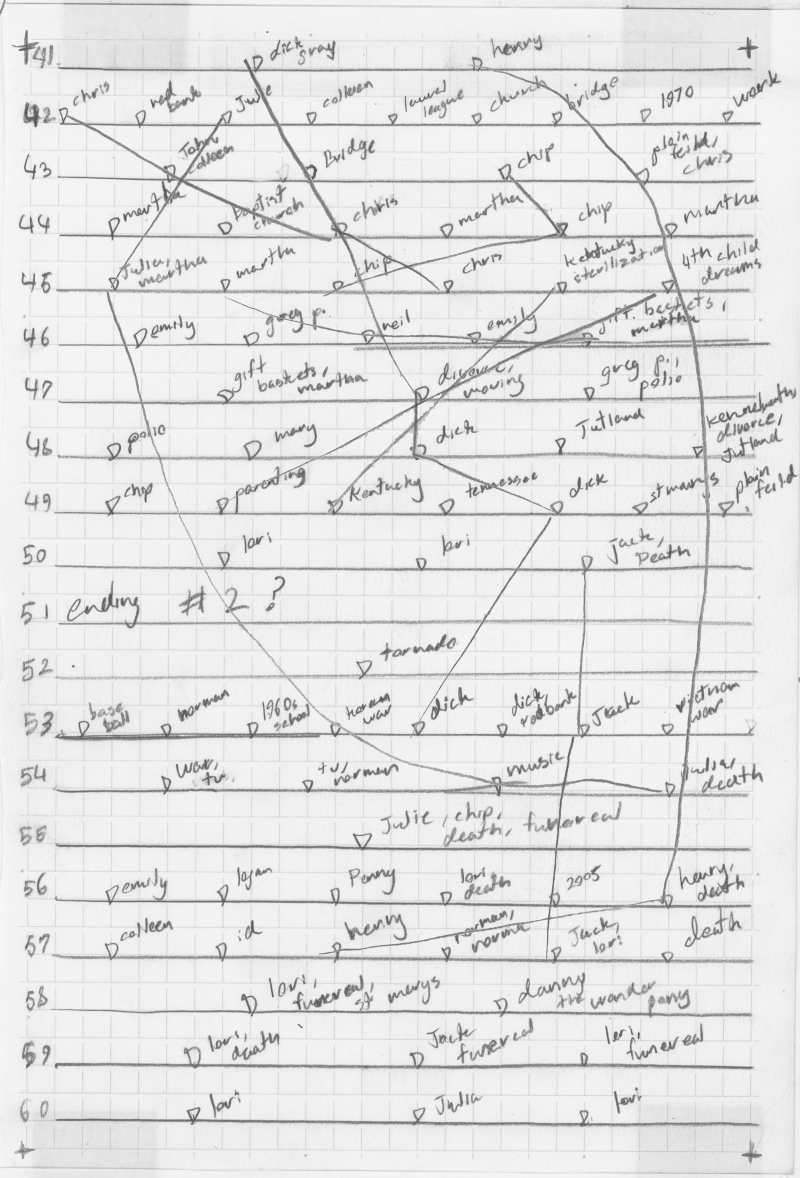 41 dick gray henry
42 chris red bank Julie colleen laurel league church bridge 1970 work
43 colleen Bridge chip plain feild, chris
44 martha baptist church chris martha chip martha
45 Julia, martha martha chip chris Kentucky sterilization 4th child dreams
46 emily greg p. neil emily gift baskets, martha
47 gift baskets, martha divorce, moving greg p., polio
48 polio mary dick Jutland divorce, Jutland
49 chip parenting Kentucky tennessee dick st marys plain feild
50 lori lori Jack, Death
51 ending #2 ?
52 tornado
53 base ball norman 1960s school war dick dick, redbank Jack vietnam war
54 war, tv. tv, norman music Julia, death
55 Julie, chip, death, funereal
56 emily logan Penny lori, death 2005 henry, death
57 colleen id henry norman, norma Jack, lori death
58 lori, funereal, st marys danny the wonder pony
59 lori, death Jack funereal lori, funereal
60 lori Julia lori